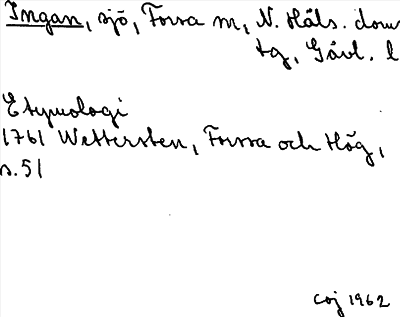 Ingan, sjö, Forsa sn, N. Häls. doms
tg, Gävl. l
Etymologi
1761 Wettersten, Forssa och Hög,
s. 51
COJ 1962